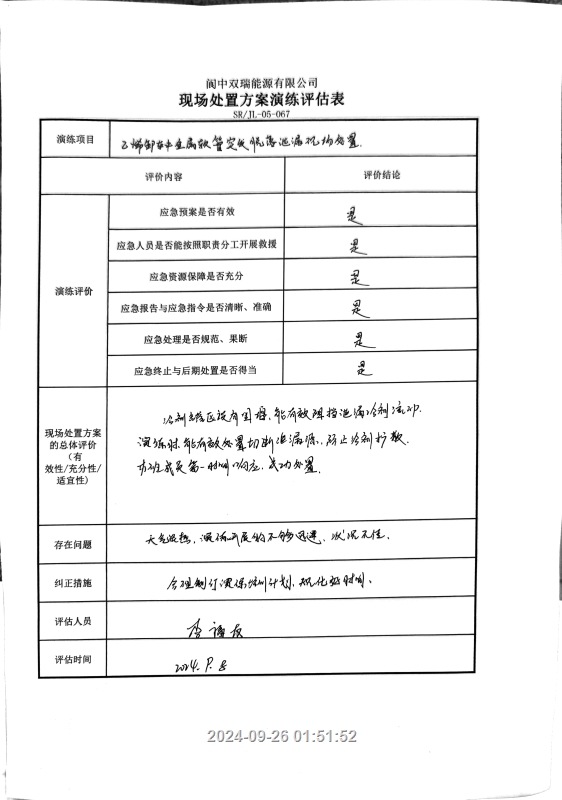 阆中双瑞能源有限公司
现场处置方案演练评估表
SR/JL-05-067
演练项目
乙烯卸车中金属软管突发脱落泄漏现场处置.
评价内容
评价结论
演练评价
应急预案是否有效
是
应急人员是否能按照职责分工开展救援
是
应急资源保障是否充分
是
应急报告与应急指令是否清晰、准确
是
应急处理是否规范、果断
是
应急终止与后期处置是否得当
是
现场处置方案
的总体评价
(有
效性/充分性/
适宜性)
冷剂罐区设有围堰,能有效阻挡泄漏冷剂流动.
演练时,能有效处置切断泄漏源,防止冷剂扩散.
当班成员第一时间响应,成功处置.
存在问题
天气湿热,演练开展的不够迅速,状况不佳.
纠正措施
合理制订演练培训计划,优化好时间.
评估人员
李
评估时间
2024.9.8
2024-09-26 01:51:52